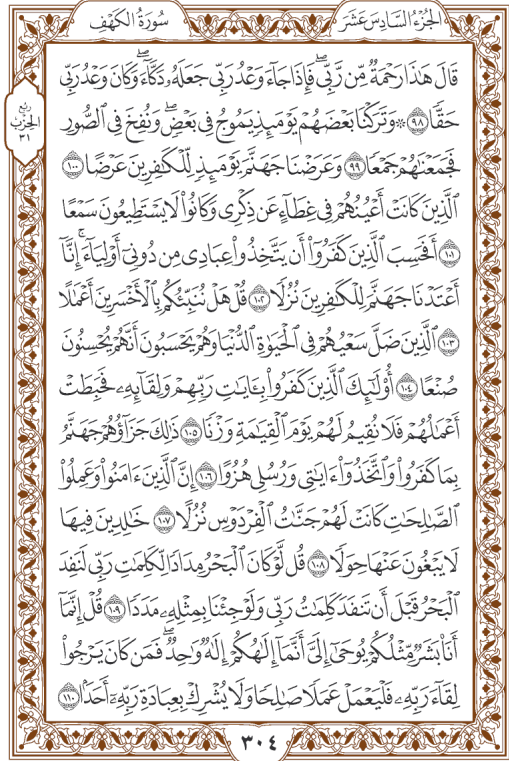 الجُزْءُ السَّادِسَ عَشَرَ
سُورَةُ الكَهْفِ
قَالَ هَٰذَا رَحْمَةٌ مِّن رَّبِّي ۖ فَإِذَا جَآءَ وَعْدُ رَبِّي جَعَلَهُۥ دَكَّآءَ ۖ وَكَانَ وَعْدُ رَبِّي
حَقًّا ٩٨ ۞ وَتَرَكْنَا بَعْضَهُمْ يَوْمَئِذٍ يَمُوجُ فِي بَعْضٍ ۖ وَنُفِخَ فِي ٱلصُّورِ
فَجَمَعْنَٰهُمْ جَمْعًا ٩٩ وَعَرَضْنَا جَهَنَّمَ يَوْمَئِذٍ لِّلْكَٰفِرِينَ عَرْضًا ١٠٠
ٱلَّذِينَ كَانَتْ أَعْيُنُهُمْ فِي غِطَآءٍ عَن ذِكْرِي وَكَانُوا۟ لَا يَسْتَطِيعُونَ سَمْعًا
١٠١ أَفَحَسِبَ ٱلَّذِينَ كَفَرُوٓا۟ أَن يَتَّخِذُوا۟ عِبَادِي مِن دُونِيٓ أَوْلِيَآءَ ۚ إِنَّآ
أَعْتَدْنَا جَهَنَّمَ لِلْكَٰفِرِينَ نُزُلًا ١٠٢ قُلْ هَلْ نُنَبِّئُكُم بِٱلْأَخْسَرِينَ أَعْمَٰلًا
١٠٣ ٱلَّذِينَ ضَلَّ سَعْيُهُمْ فِي ٱلْحَيَوٰةِ ٱلدُّنْيَا وَهُمْ يَحْسَبُونَ أَنَّهُمْ يُحْسِنُونَ
صُنْعًا ١٠٤ أُو۟لَٰٓئِكَ ٱلَّذِينَ كَفَرُوا۟ بِـَٔايَٰتِ رَبِّهِمْ وَلِقَآئِهِۦ فَحَبِطَتْ
أَعْمَٰلُهُمْ فَلَا نُقِيمُ لَهُمْ يَوْمَ ٱلْقِيَٰمَةِ وَزْنًا ١٠٥ ذَٰلِكَ جَزَآؤُهُمْ جَهَنَّمُ
بِمَا كَفَرُوا۟ وَٱتَّخَذُوٓا۟ ءَايَٰتِي وَرُسُلِي هُزُوًا ١٠٦ إِنَّ ٱلَّذِينَ ءَامَنُوا۟ وَعَمِلُوا۟
ٱلصَّٰلِحَٰتِ كَانَتْ لَهُمْ جَنَّٰتُ ٱلْفِرْدَوْسِ نُزُلًا ١٠٧ خَٰلِدِينَ فِيهَا
لَا يَبْغُونَ عَنْهَا حِوَلًا ١٠٨ قُل لَّوْ كَانَ ٱلْبَحْرُ مِدَادًا لِّكَلِمَٰتِ رَبِّي لَنَفِدَ
ٱلْبَحْرُ قَبْلَ أَن تَنفَدَ كَلِمَٰتُ رَبِّي وَلَوْ جِئْنَا بِمِثْلِهِۦ مَدَدًا ١٠٩ قُلْ إِنَّمَآ
أَنَا۠ بَشَرٌ مِّثْلُكُمْ يُوحَىٰٓ إِلَيَّ أَنَّمَآ إِلَٰهُكُمْ إِلَٰهٌ وَٰحِدٌ ۖ فَمَن كَانَ يَرْجُوا۟
لِقَآءَ رَبِّهِۦ فَلْيَعْمَلْ عَمَلًا صَٰلِحًا وَلَا يُشْرِكْ بِعِبَادَةِ رَبِّهِۦٓ أَحَدًۢا ١١٠
ربع
الحزب
٣١
٣٠٤